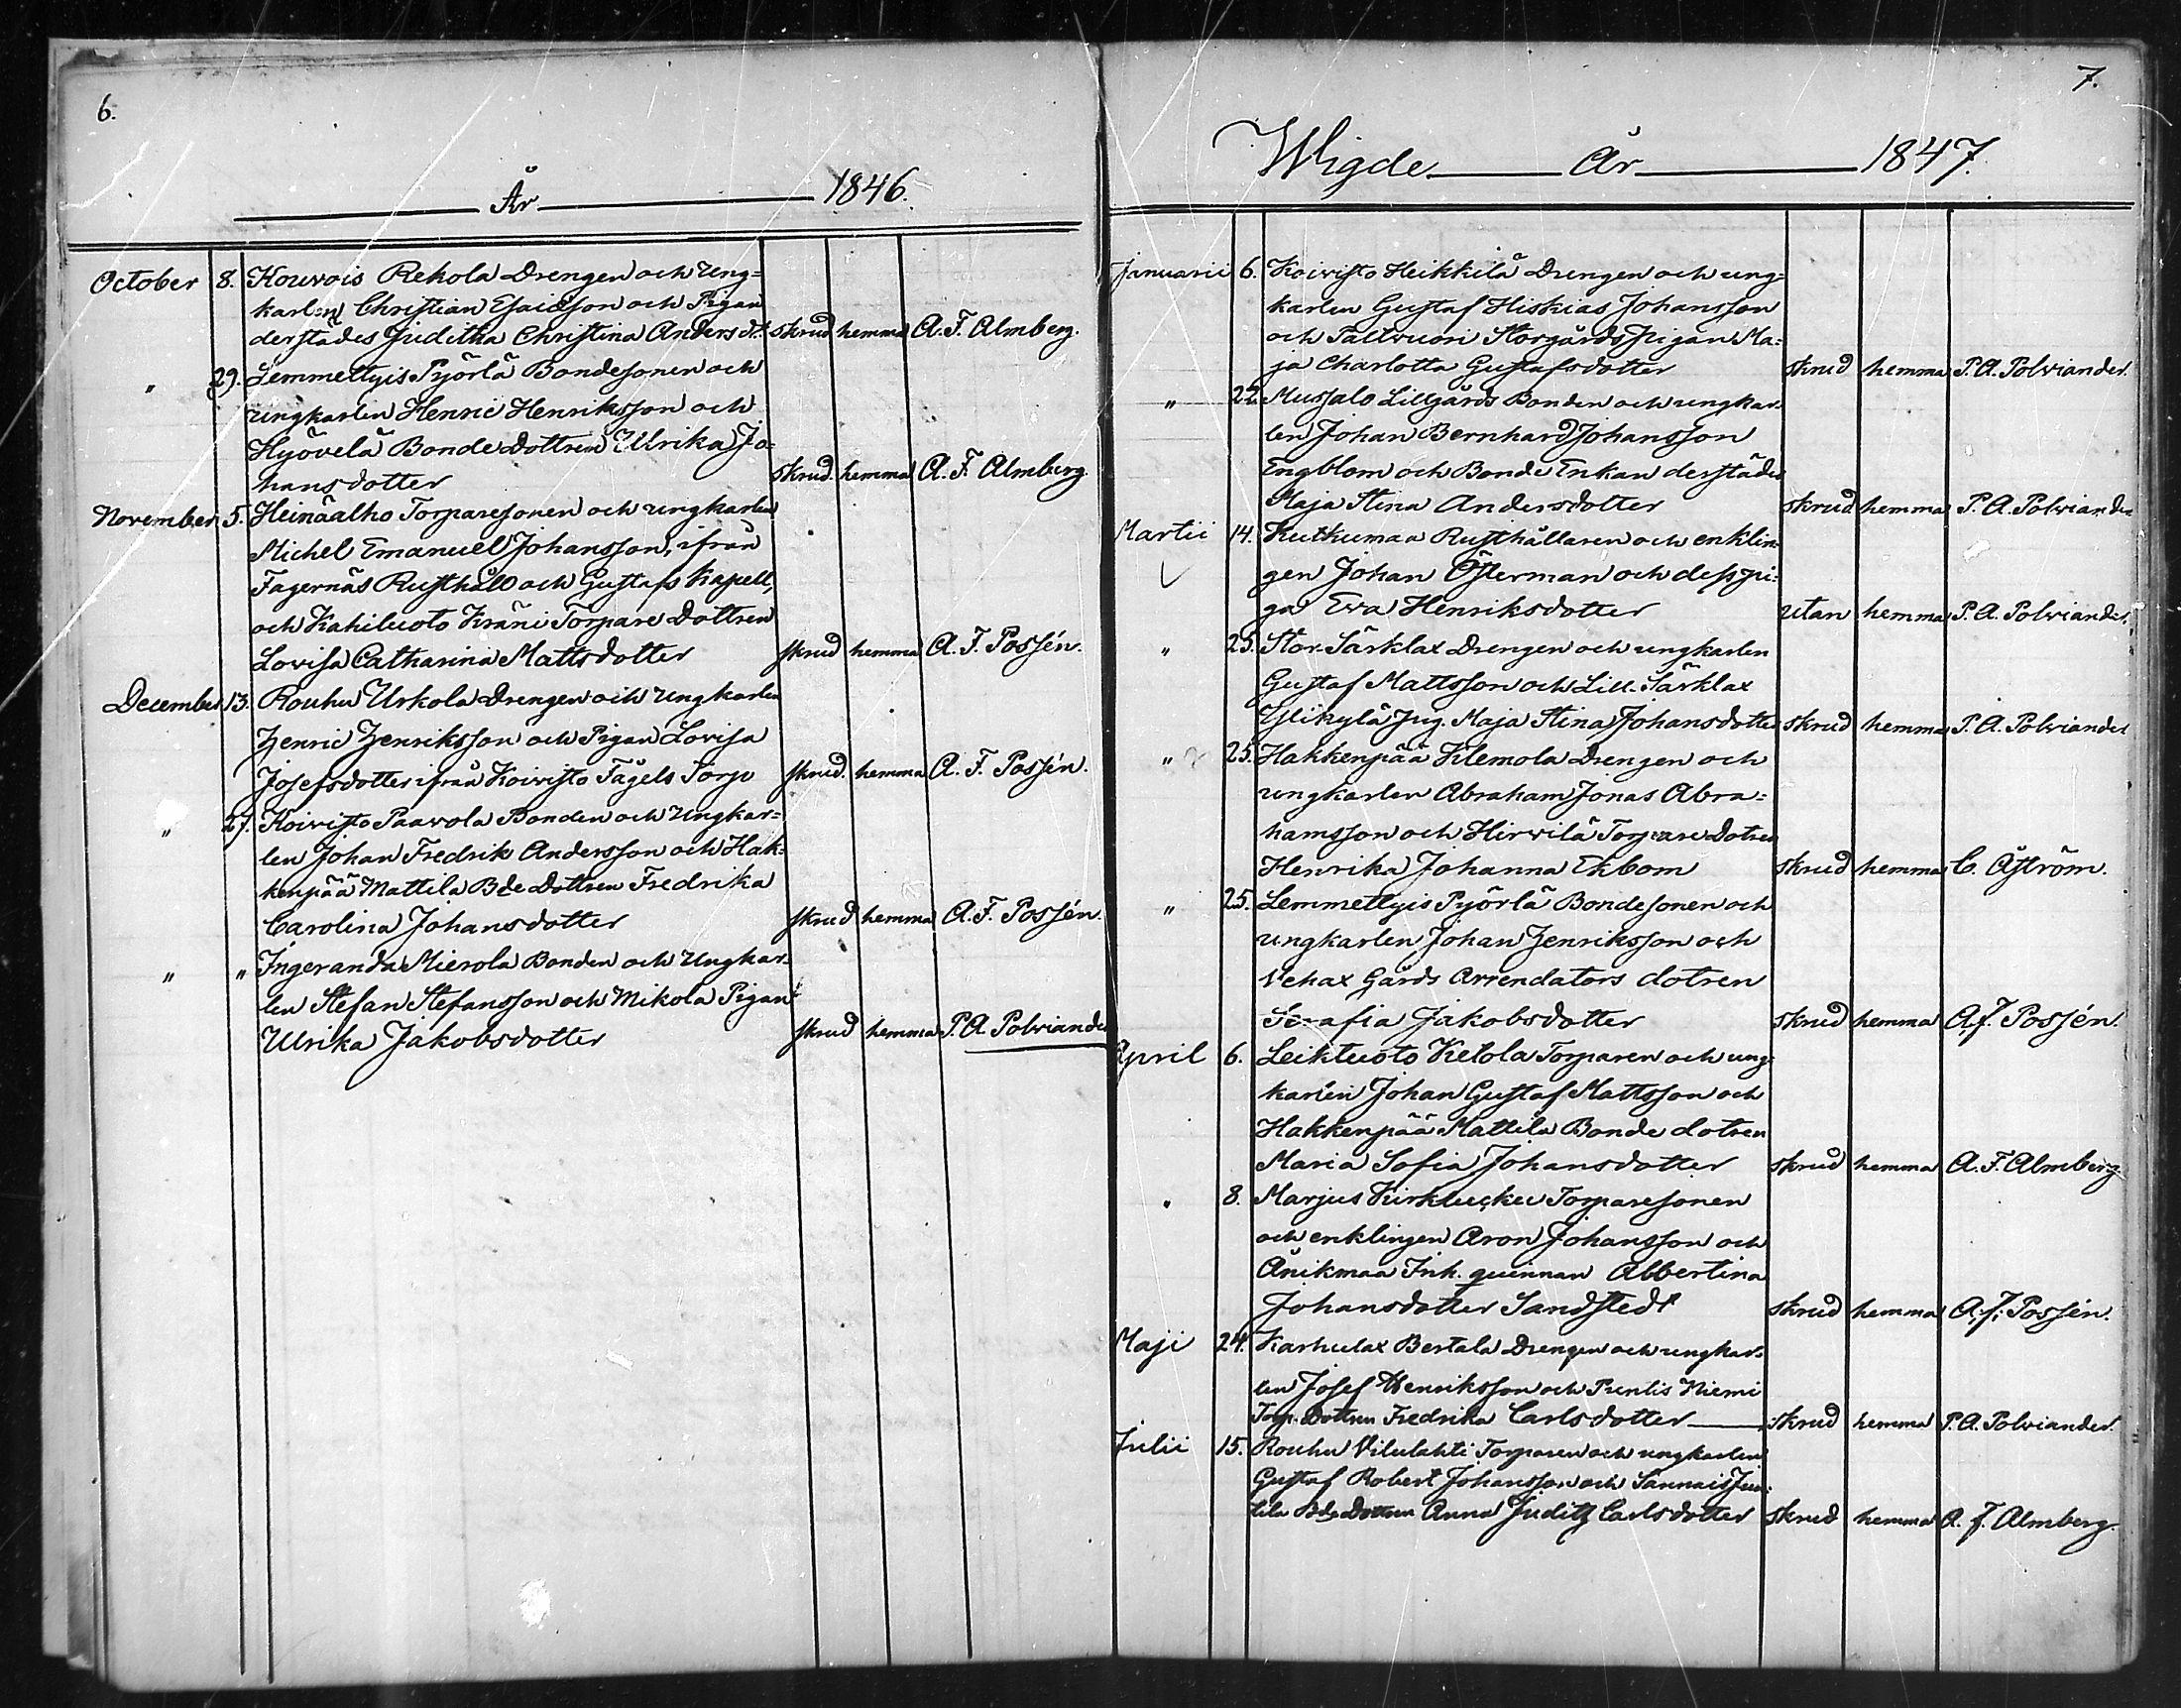 6.
År 1846.
October 8. Kouvois Rekola Drengen och Ung=
karlen Christian Esaiasson och Pigan
derstädes Juditha Christina Anders dt. skrud hemma A. F. Almberg.
" 29. Lemmettyis Pyörlä Bondesonen och
ungkarlen Henric Henriksson och
Hyövelä Bonde Dottren Ulrika Jo=
hansdotter skrud. hemma A. F. Almberg
November 5. Heinäalho Torparesonen och ungkarlen
Michel Emanuel Johansson, ifrån
Fagernäs Rusthåll och Gustafs Kapell,
och Kahiluoto Kräni Torpare Dottren
Lovisa Catharina Mattsdotter skrud hemma A. F. Possén.
December 13. Rouhu Urkola Drengen och Ungkarlen
Henric Henriksson och Pigan Lovisa
Josefsdotter ifrån Koivisto Fågels Torp skrud. hemma A. F. Possén.
" 27. Koivisto Paavola Bonden och Ungkar=
len Johan Fredrik Andersson och Hak=
kenpää Mattila Bde Dottren Fredrika
Carolina Johansdotter skrud hemma A. F. Possén.
" " Ingeranda Mierola Bonden och Ungkar=
len Stefan Stefansson och Mikola Pigan
Ulrika Jakobsdotter skrud hemma P. A. Polviander
7.
Wigde År 1847.
Januarii 6. Koivisto Heikkilä Drengen och ung=
karlen Gustaf Hiskias Johansson
och Tallvuori Storgårds Pigan Ma=
ja Charlotta Gustafsdotter skrud hemma P. A. Polviander.
" 22. Mussalo Lillgårds Bonden och ungkar=
len Johan Bernhard Johansson
Engblom och Bonde Enkan derstädes
Maja Stina Andersdotter skrud hemma P. A. Polviander
Martii 14. Kutkumaa Rusthållaren och enklin=
gen Johan Österman och dess pi=
ga Eva Henriksdotter utan hemma P. A. Polviander.
" 25. Stor-Särklax Drengen och ungkarlen
Gustaf Mattsson och Lill-Särklax
Ylikylä Jng. Maja Stina Johansdotter skrud hemma P. A. Polviander
" 25. Hakkenpää Klemola Drengen och
ungkarlen Abraham Jonas Abra=
hamsson och Hirvilä Torpare Dotren
Henrika Johanna Ekbom skrud hemma C. Åström.
" 25. Lemmettyis Pyörlä Bondesonen och
ungkarlen Johan Henriksson och
Vehax Gårds Arrendators dotren
Serafia Jakobsdotter skrud hemma A. f. Possén.
April 6. Leikluoto Ketola Torparen och ung=
karlen Johan Gustaf Mattsson och
Hakkenpää Mattila Bonde dotren
Maria Sofia Johansdotter skrud hemma A. F. Almberg
" 8. Marjus Torparesonen
och enklingen Aron Johansson och
Änikmaa Inh. quinnan Albertina
Johansdotter Sandstedt skrud hemma A. f. Possén.
Maji 24. Karhulax Bertala Drengen och ungkar=
len Josef Henriksson och Pruntis Niemi
Torp. Dottren Fredrika Carlsdotter skrud hemma P. A. Polviander.
Julii 15. Rouhu Vilulahti Torparen och ungkarlen
Gustaf Robert Johansson och Sannais Jun=
tila Bde Dottren Anna Judith Carlsdotter skrud hemma A. f. Almberg.